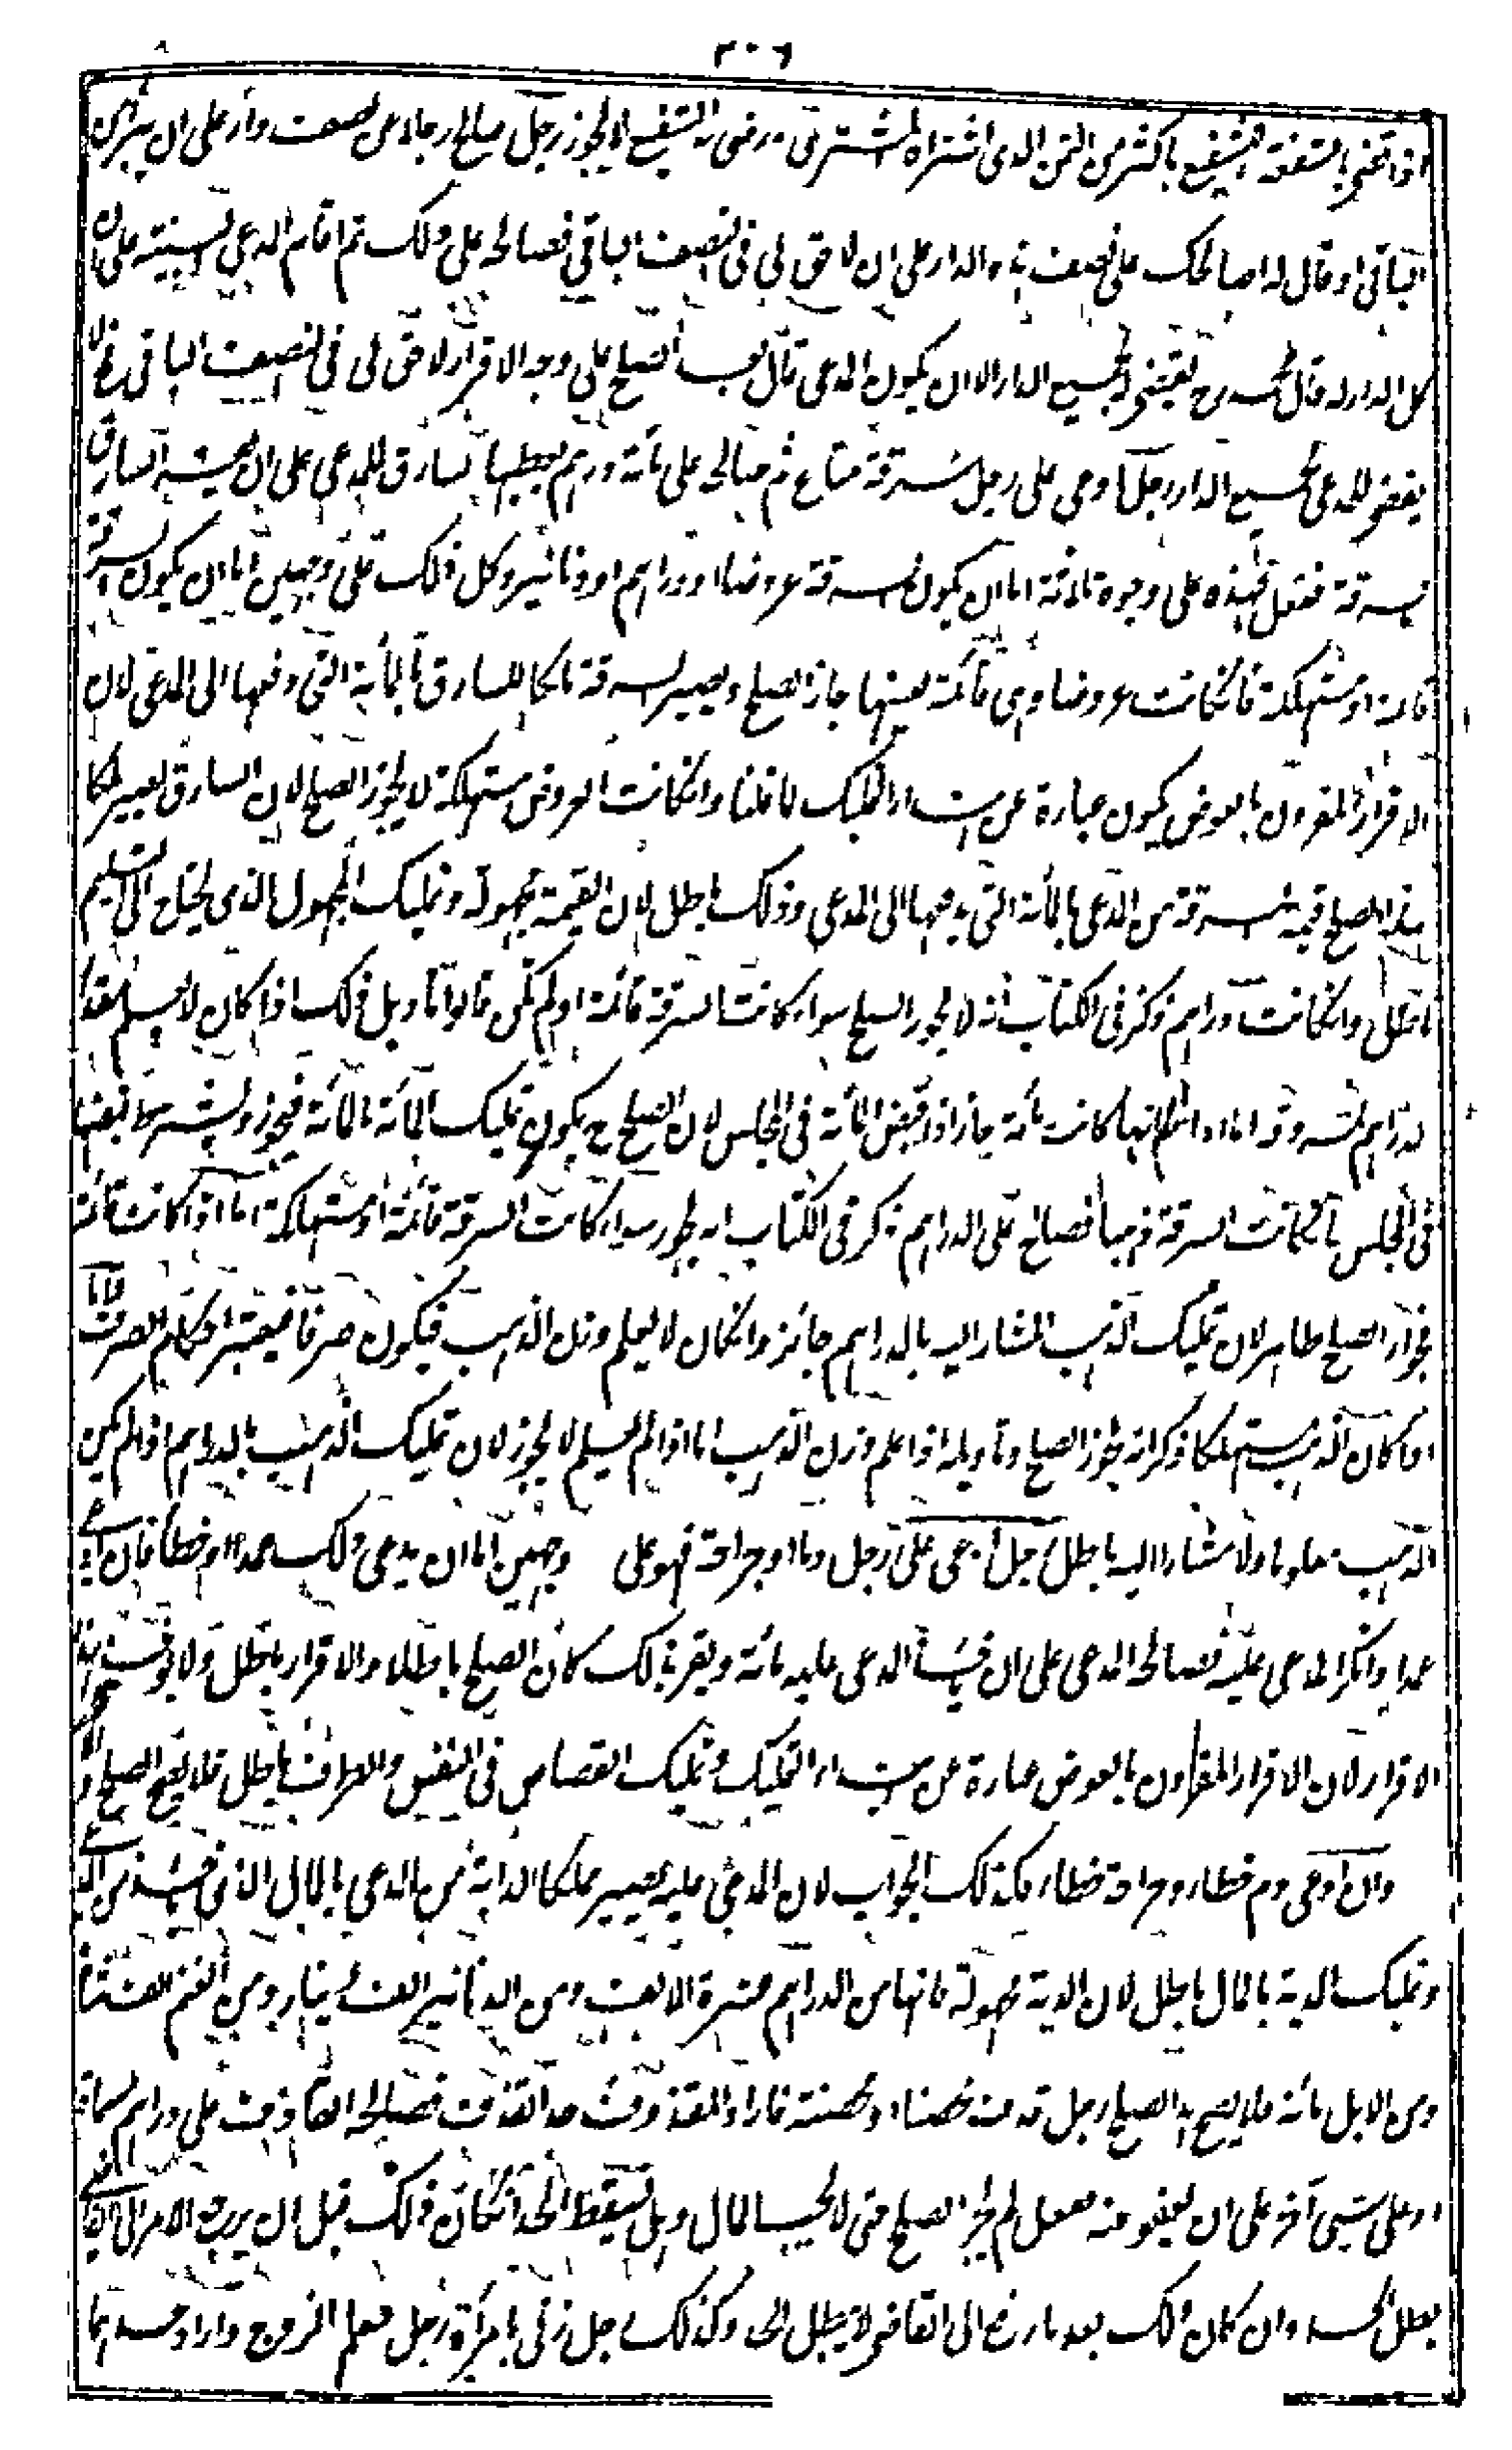 ٣٠٦
اذا قضى بالشفعة للشفيع باكثر من الثمن الذى اشتراه المشترى ورضى به الشفيع لا يجوز رجل صالح رجلا من نصف دار على ان يبرأ من
الباقى او قال له اصالحك على نصف هذه الدار على ان لا حق لى فى النصف الباقى فصالحه على ذلك ثم اقام المدعى البينة على ان
كل الدار له قال محمد رح يقضى له بجميع الدار الا ان يكون المدعى قال بعد الصلح على وجه الاقرار لا حق لى فى النصف الباقى فح لا
يقضى للمدعى بجميع الدار رجل ادعى على رجل سرقة متاع ثم صالحه على مائة درهم يعطيها السارق للمدعى على ان السارق
بالسرقة ففعل فهذه على وجوه ثلاثة اما ان يكون السرقة عروضا او دراهم او دنانير وكل ذلك على وجهين اما ان يكون السرقة
قائمة او مستهلكة فانكانت عروضا وهى قائمة بعينها جاز الصلح ويصير السرقة ملكا للسارق بالمائة التى دفعها الى المدعى لان
الاقرار المقرون بالعوض يكون عبارة عن ابتداء التمليك لما قلنا وانكانت العروض مستهلكة لا يجوز الصلح لان السارق يصير ملكا
بهذا الصلح قيمة السرقة من المدعى بالمائة التى يدفعها الى المدعى وذلك باطل لان القيمة مجهولة وتمليك المجهول الذى يحتاج الى التسليم
باطل وانكانت دراهم ذكر فى الكتاب انه لا يجوز الصلح سواء كانت السرقة قائمة او لم تكن قالوا تأويل ذلك اذا كان لا يعلم مقدار
الدراهم المسروقة اما اذا علم انها كانت مائة جاز اذا قبض المائة فى المجلس لان الصلح ح يكون تمليك المائة بالمائة فيجوز ويشترط قبضها
فى المجلس فانكانت السرقة ذهبا فصالح على الدراهم ذكر فى الكتاب انه يجوز سواء كانت السرقة قائمة او مستهلكة اما اذا كانت قائمة
فجواز الصلح ظاهر لان تمليك الذهب المشار اليه بالدراهم جائز وانكان لا يعلم وزن الذهب فيكون صرفا فيعتبر احكام الصرف واما
اذا كان الذهب مستهلكا ذكر انه يجوز الصلح وتأويله اذا علم وزن الذهب اما اذا لم يعلم لا يجوز لان تمليك الذهب بالدراهم اذا لم يكن
الذهب معلوما ولا مشارا اليه باطل رجل ادعى على رجل دما او جراحة فهو على وجهين اما ان يدعى ذلك عمدا او خطأ فان ادعى
عمدا وانكر المدعى عليه فصالحه المدعى على ان المدعى عليه مائة ويقر بذلك كان الصلح باطلا والاقرار باطل ولا يؤخذ بهذا
الاقرار لان الاقرار المقرون بالعوض عبارة عن ابتداء التمليك وتمليك القصاص فى النفس والطراف باطل فلا يصح الصلح
وان ادعى دم خطأ وجراحة خطأ فكذلك الجواب لان المدعى عليه يصير ملكا الدية من المدعى بالمال الذى
وتمليك الدية بالمال باطل لان الدية مجهولة فانها من الدراهم عشرة الآلاف ومن الدنانير الف دينار ومن الغنم الف شاة
ومن الابل مائة فلا يصح هذا الصلح رجل قذف محصنا او محصنة فاراد المقذوف حد القذف فصالحه القاذف على دراهم مسماة
او على شىء آخر على ان يعفو عنه ففعل لم يجز الصلح حتى لا يجب المال وهل يسقط الحد انكان ذلك قبل ان يرفع الامر الى القاضى
بطل الحد وان كان ذلك بعد ما رفع الى القاضى لا يبطل الحد وكذلك رجل زنى بامرأة رجل فعلم الزوج واراد حدهما